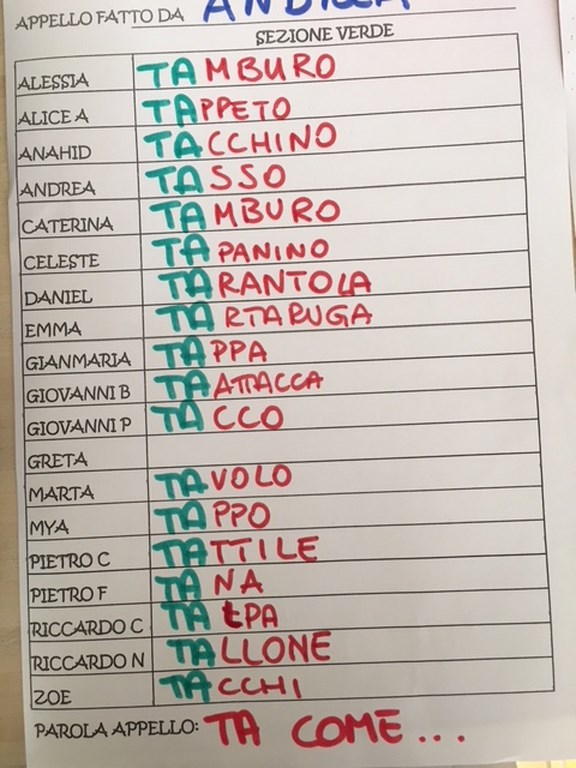 APPELLO FATTO DA ANDREA
SEZIONE VERDE
ALESSIA TAMBURO
ALICE A TAPPETO
ANAHID TACCHINO
ANDREA TASSO
CATERINA TAMBURO
CELESTE TAPANINO
DANIEL TARANTOLA
EMMA TARTARUGA
GIANMARIA TAPPA
GIOVANNI B TAATTACCA
GIOVANNI P TACCO
GRETA
MARTA TAVOLO
MYA TAPPO
PIETRO C TATTILE
PIETRO F TANA
RICCARDO C TALPA
RICCARDO N TALLONE
ZOE TACCHI
PAROLA APPELLO: TA COME...